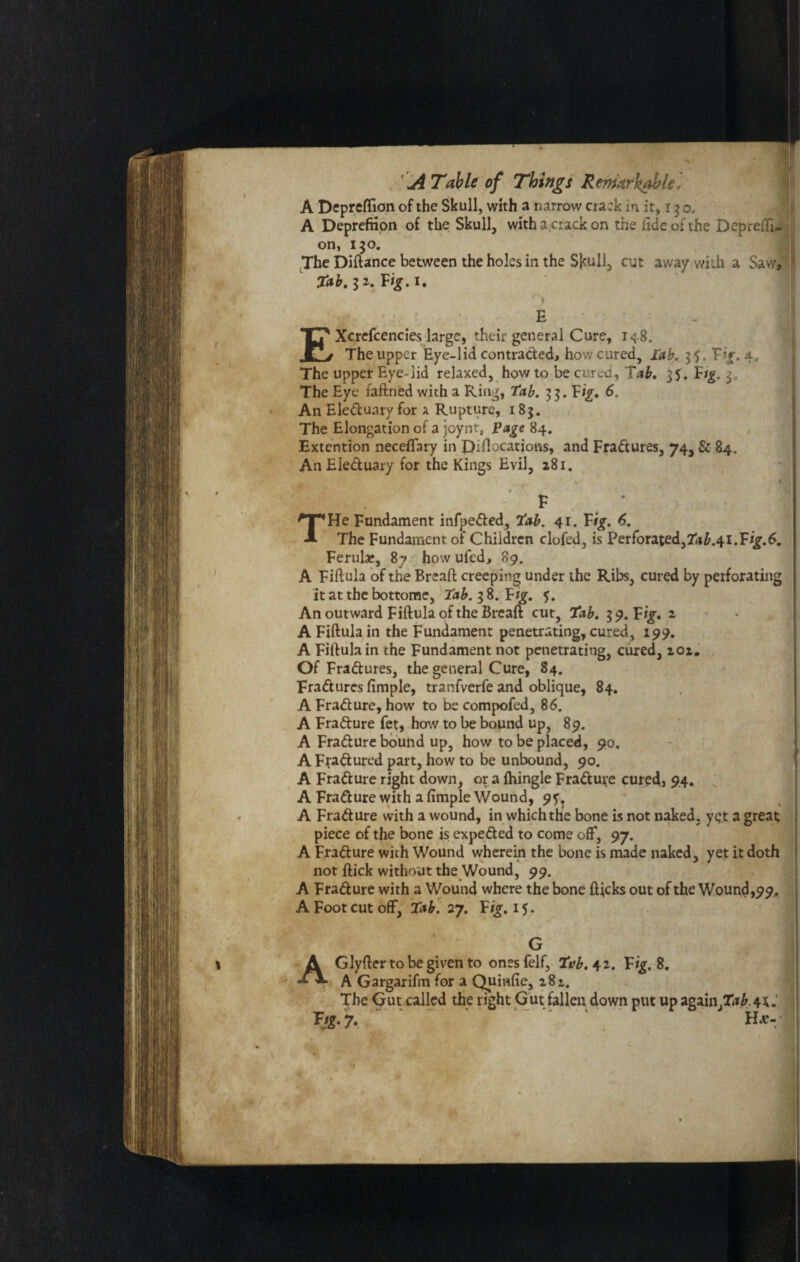 A Table of Things Remarkable.
A Depreſſion of the Skull, with a narrow crack in it, 130.
A Depreſſion of the Skull, with a crack on the ſide of the Depreſſi-
on, 130.
The Diſtance between the holes in the Skull, cut away with a Saw,
Tab. 32. Fig. 1.
E
EXcreſcencies large, their general Cure, 148.
The upper Eye-lid contracted, how cured, Tab. 35. Fig. 4.
The upper Eye-lid relaxed, how to be cured, Tab. 35. Fig. 3.
The Eye faſtned with a Ring, Tab. 33. Fig. 6.
An Electuary for a Rupture, 183.
The Elongation of a joynt, Page 84.
Extention neceſſary in Diſlocations, and Fractures, 74, & 84.
An Electuary for the Kings Evil, 281.
F
THe Fundament inſpected, Tab. 41. Fig. 6.
The Fundament of Children cloſed, is Perforated, Tab. 41. Fig. 6.
Ferulæ, 87 how uſed, 89.
A Fiſtula of the Breaſt creeping under the Ribs, cured by perforating
it at the bottome, Tab. 38. Fig. 5.
An outward Fiſtula of the Breaſt cut, Tab. 39. Fig. 2
A Fiſtula in the Fundament penetrating, cured, 199.
A Fiſtula in the Fundament not penetrating, cured, 202.
Of Fractures, the general Cure, 84.
Fractures ſimple, tranſverſe and oblique, 84.
A Fracture, how to be compoſed, 86.
A Fracture ſet, how to be bound up, 89.
A Fracture bound up, how to be placed, 90.
A Fractured part, how to be unbound, 90.
A Fracture right down, or a ſhingle Fracture cured, 94.
A Fracture with a ſimple Wound, 95.
A Fracture with a wound, in which the bone is not naked, yet a great
piece of the bone is expected to come off, 97.
A Fracture with Wound wherein the bone is made naked, yet it doth
not ſtick without the Wound, 99.
A Fracture with a Wound where the bone ſticks out of the Wound, 99.
A Foot cut off, Tab. 27. Fig. 15.
G
A Glyſter to be given to ones ſelf, Tvb. 42. Fig. 8.
A Gargariſm for a Quinſie, 282.
The Gut called the right Gut fallen down put up again, Tab. 41.
Fig. 7.
Hæ-